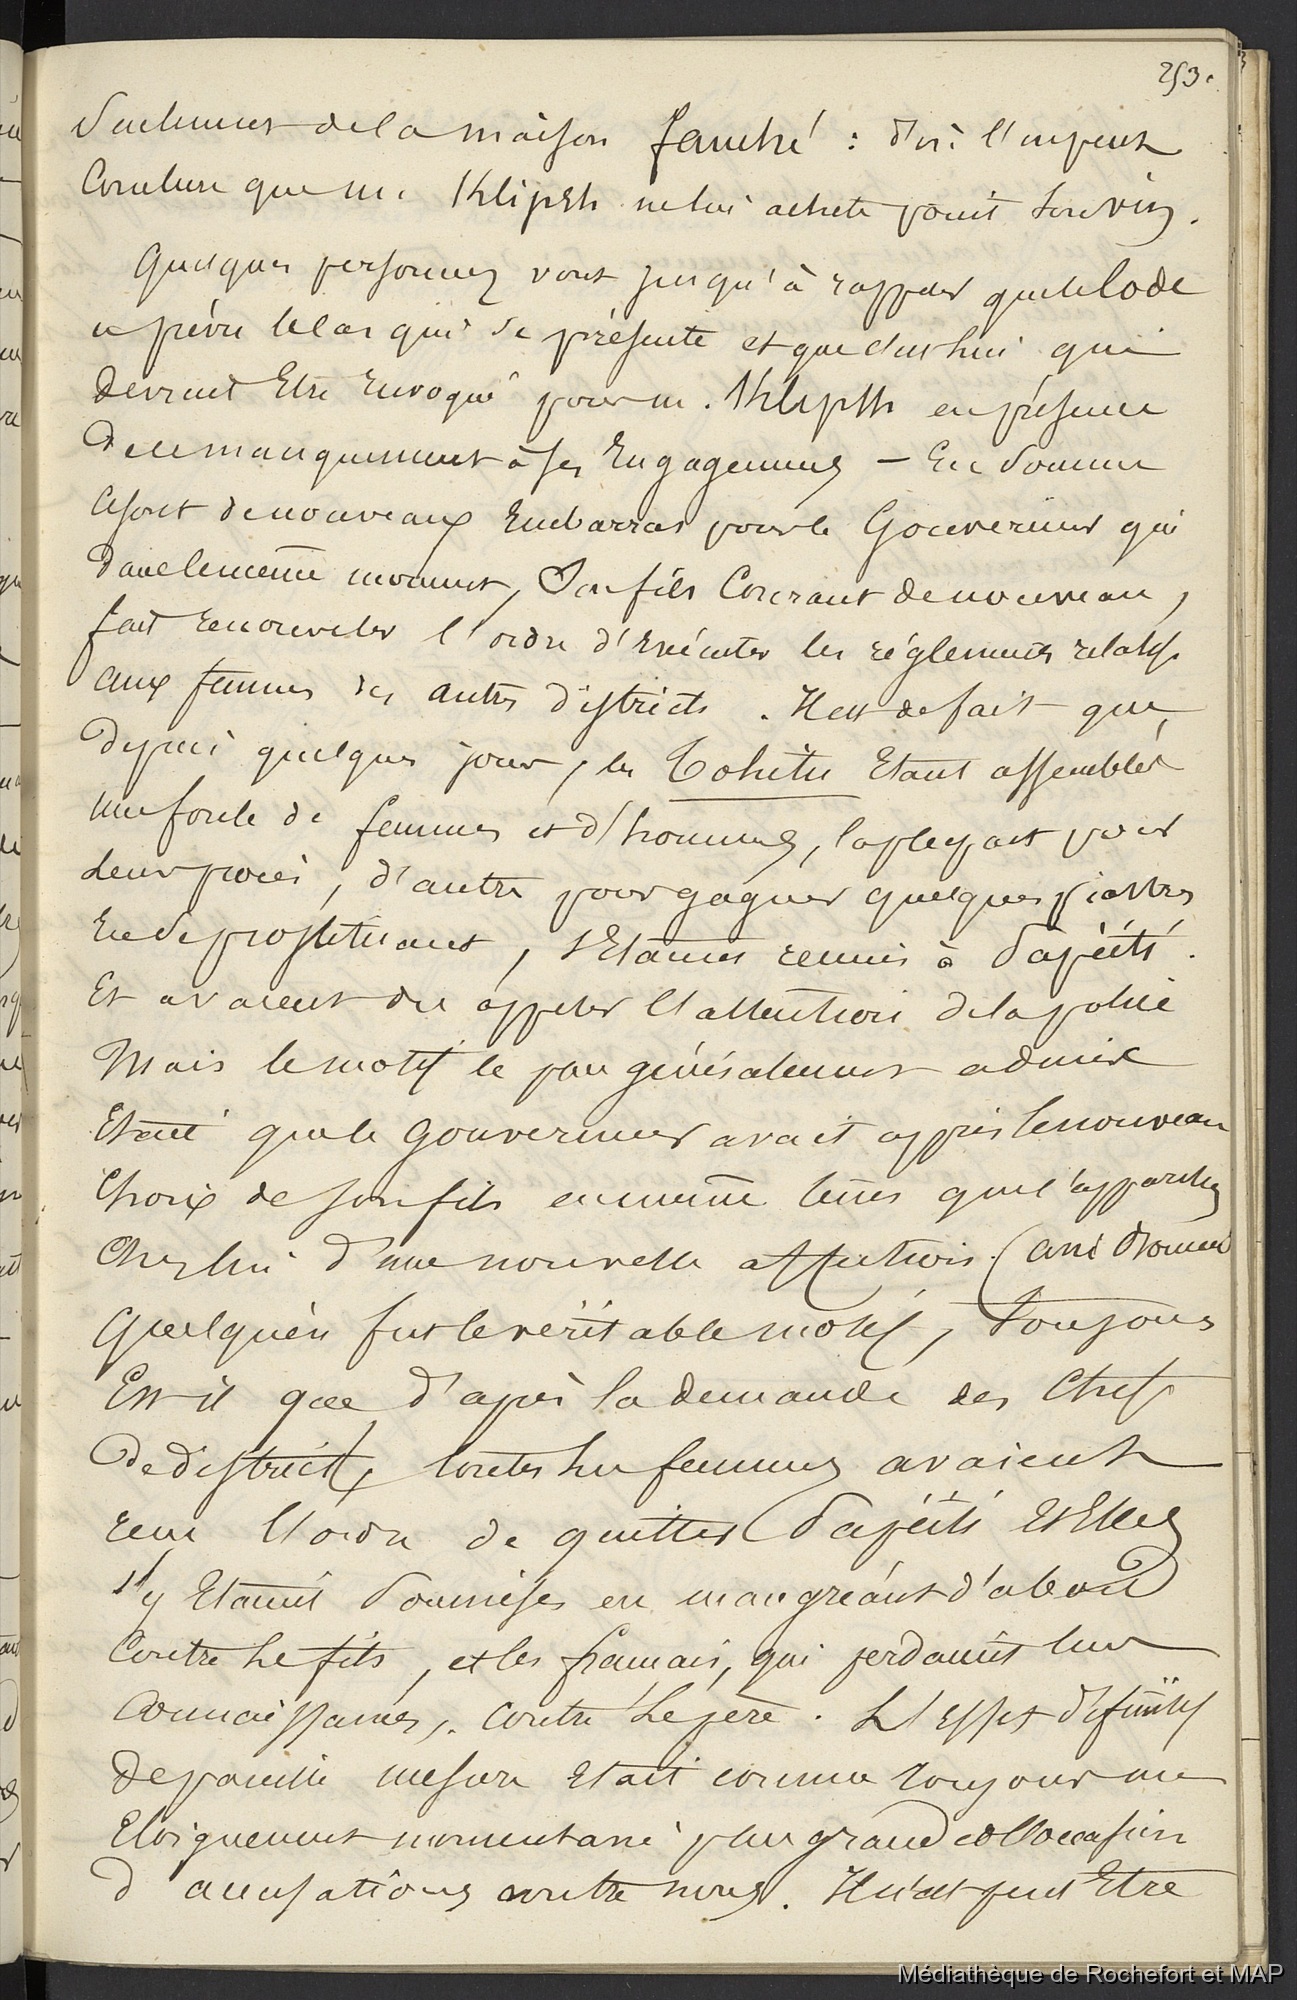 253.
Seulement de la maison fauché : d'où l'on peut
Conclure que m. Klipsh ne lui achète point Son vin.
Quelques personnes vont jusqu'à rappeler que le Code
a prévu le cas qui se présente et que c'est lui qui
devrait Etre Envoqué pour m. Klipsh en présence
de ce manquement à ses Engagemens – En Somme
Ce sont de nouveaux Embarras pour le Gouverneur qui
dans le même moment, Son fils Courant de nouveau,
fait renouveler l'ordre d'Exécuter les réglements relatifs
aux femmes des autres districts. Il est de fait que,
depuis quelques jours, les Tohitu Etant assemblés
une foule de femmes et d'hommes, la plupart pour
leurs procès, d'autre pour gagner quelques piastres
En se prostituant, s'Etaient réunis à Papéïti.
Et avaient du appeler l'attention de la police
Mais le motif le plus généralement admis
Etait que le Gouverneur avait appris le nouveau
Choix de son fils en même tems que l'apparition
Chez lui d'une nouvelle affection.
Quelqu'en fut le véritable motif, Toujours
Est-il que d'après la demande des Chefs
de districts, toutes les femmes avaient
reçu l'ordre de quitter Papéïti Et Elles
s'y Etaient Soumises en maugréant d'abord
Contre le fils, et les français, qui perdaient leurs
Connaissances, contre le père. L'Effet définitif
de pareille mesure Etait comme toujours un
Eloignement momentané plus grand et l'occasion
d'accusations contre nous. Il n'est peut Etre
Médiathèque de Rochefort et MAP